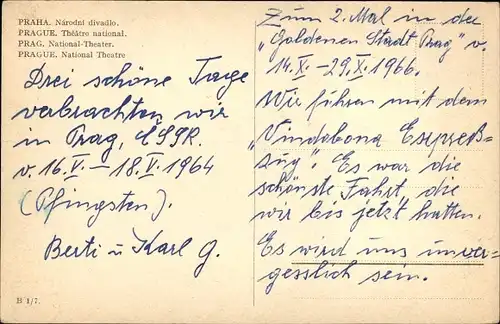 PRAHA. Národní divadlo.
PRAGUE. Théâtre national.
PRAG, National-Theater.
PRAGUE. National Theatre
Drei schöne Tage
verbrachten wir
in Prag, ČSSR.
v. 16.V. – 18.V.1964
(Pfingsten).
Berti u. Karl G.
B 1/7.
Zum 2. Mal in der
"Goldenen Stadt Prag" v.
14.X. – 29.X.1966.
Wir führen mit dem
"Vindobona Expreß-
zug". Es war die
schönste Fahrt, die
wir bis jetzt hatten.
Es wird uns unver-
gesslich sein.